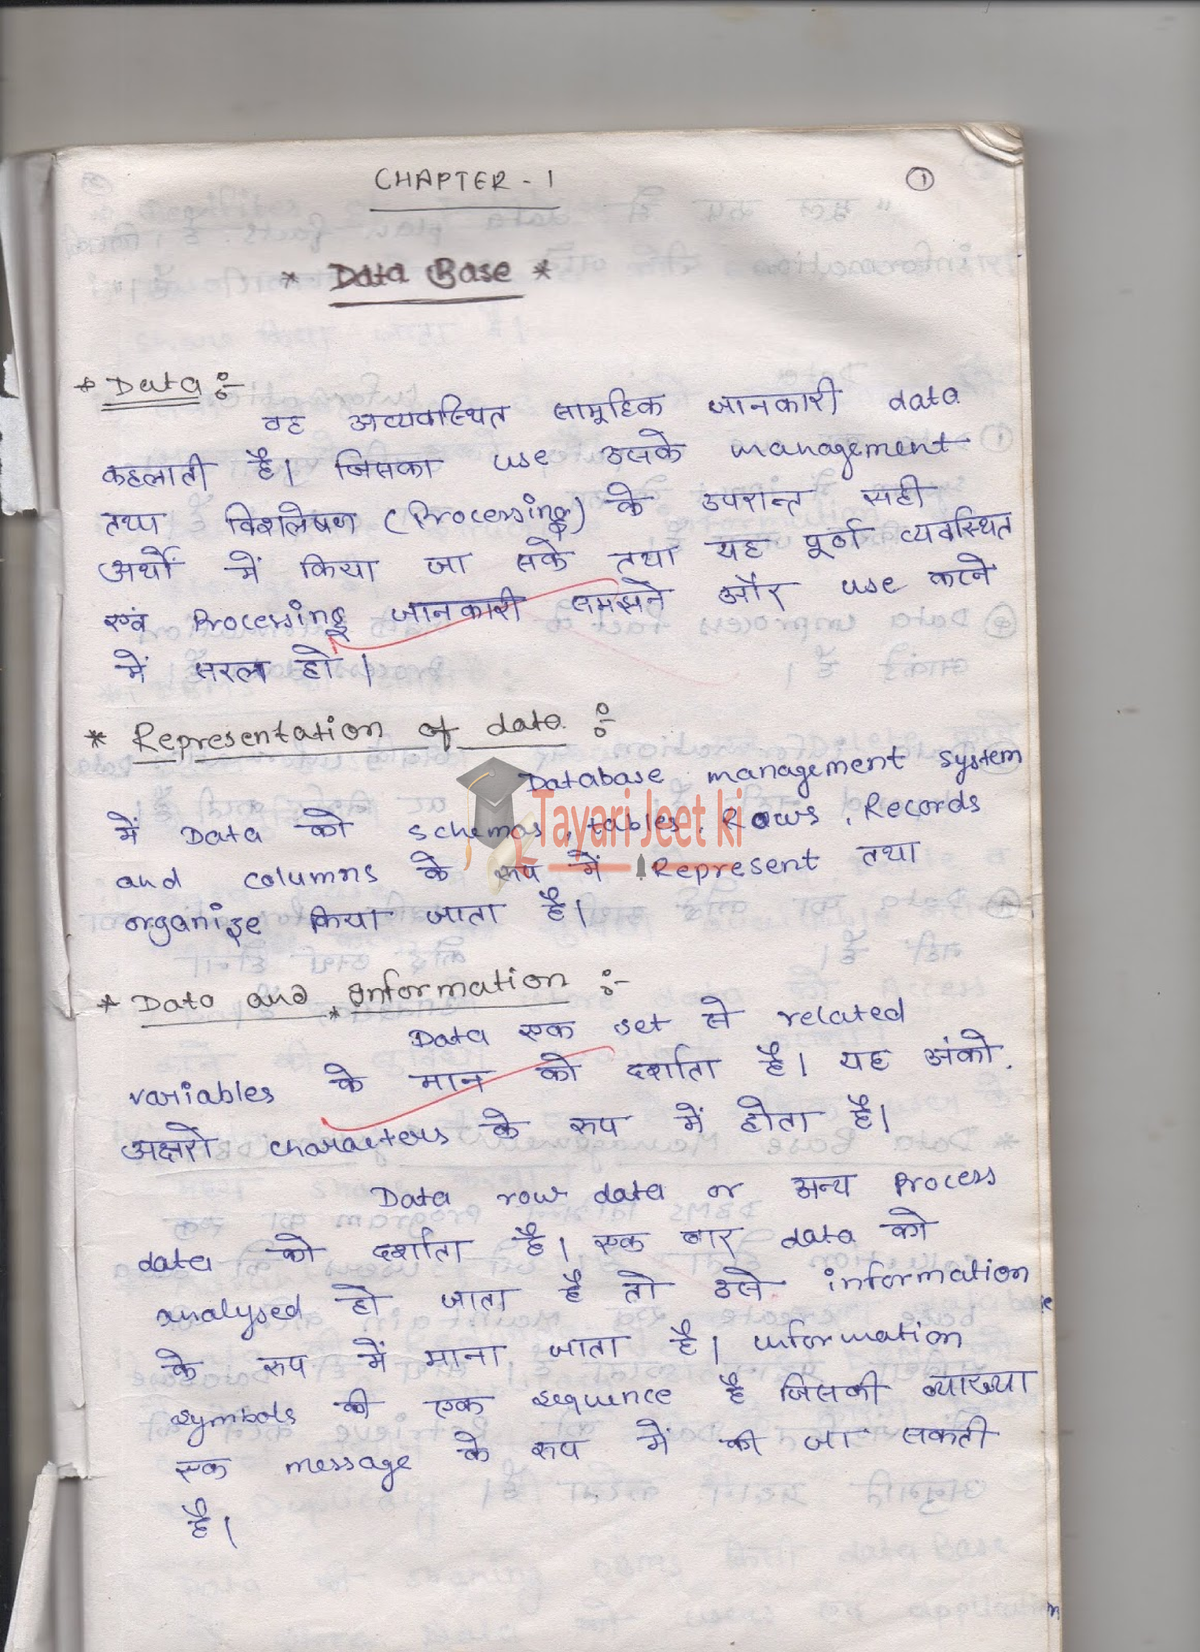 CHAPTER - 1
1
* Data Base *
* Data :-
वह अव्यवस्थित सामूहिक जानकारी data
कहलाती है। जिसका use उसके management
तथा विश्लेषण (Processing) के उपरान्त सही
अर्थों में किया जा सके तथा यह पूर्ण व्यवस्थित
एवं Processing जानकारी समझने और use करने
में सरल हो।
* Representation of data :-
Database management system
में Data को schemas, tables, Rows, Records
and columns के रूप में Represent तथा
organize किया जाता है।
Tayari Jeet ki
* Data and Information :-
Data एक set से related
variables के मान को दर्शाता है। यह अंको,
अक्षरो characters के रूप में होता है।
Data row data or अन्य Process
data को दर्शाता है। एक बार data को
analysed हो जाता है तो उसे information
के रूप में माना जाता है। information
symbols की एक sequence है जिसकी व्याख्या
एक message के रूप में की जा सकती
है।